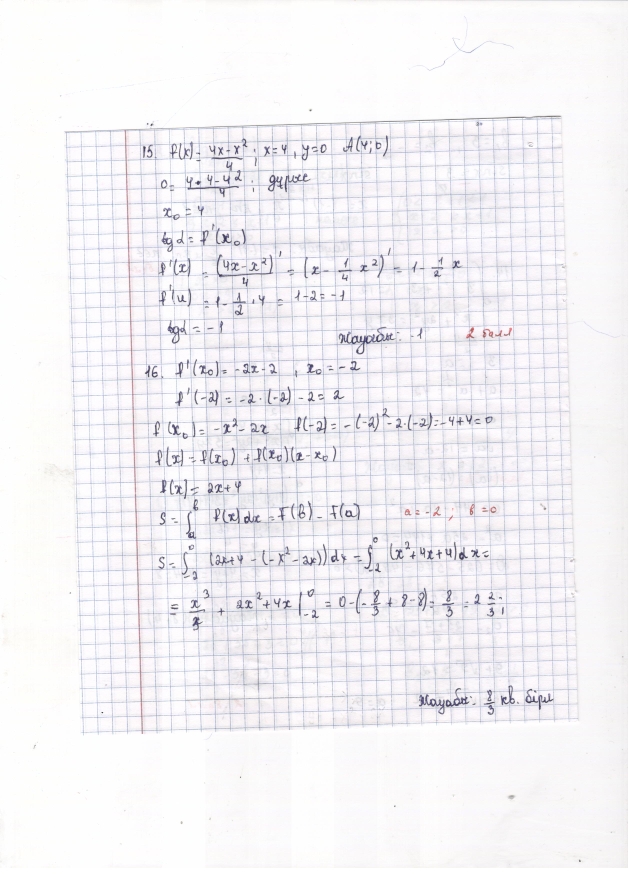 15. f(x) = (4x-x²)/4 ; x=4, y=0 A(4;0)
0 = (4·4-4²)/4 ; дұрыс
x₀ = 4
tgα = f'(x₀)
f'(x) = ((4x-x²)/4)' = (x - 1/4 x²)' = 1 - 1/2 x
f'(4) = 1 - 1/2 · 4 = 1-2 = -1
tgα = -1
Жауабы: -1 2 балл
16. f'(x₀) = -2x-2 , x₀ = -2
f'(-2) = -2·(-2) - 2 = 2
f(x₀) = -x²-2x f(-2) = -(-2)²-2·(-2) = -4+4 = 0
f(x) = f(x₀) + f(x₀)(x-x₀)
f(x) = 2x+4
S = ∫ₐᵇ f(x)dx = F(b) - F(a) a = -2 ; b = 0
S = ∫₋₂⁰ (2x+4 - (-x²-2x))dx = ∫₋₂⁰ (x²+4x+4)dx =
= x³/3 + 2x²+4x |₋₂⁰ = 0-(-8/3 + 8-8) = 8/3 = 2 2/3;
Жауабы: 8/3 кв. бірл